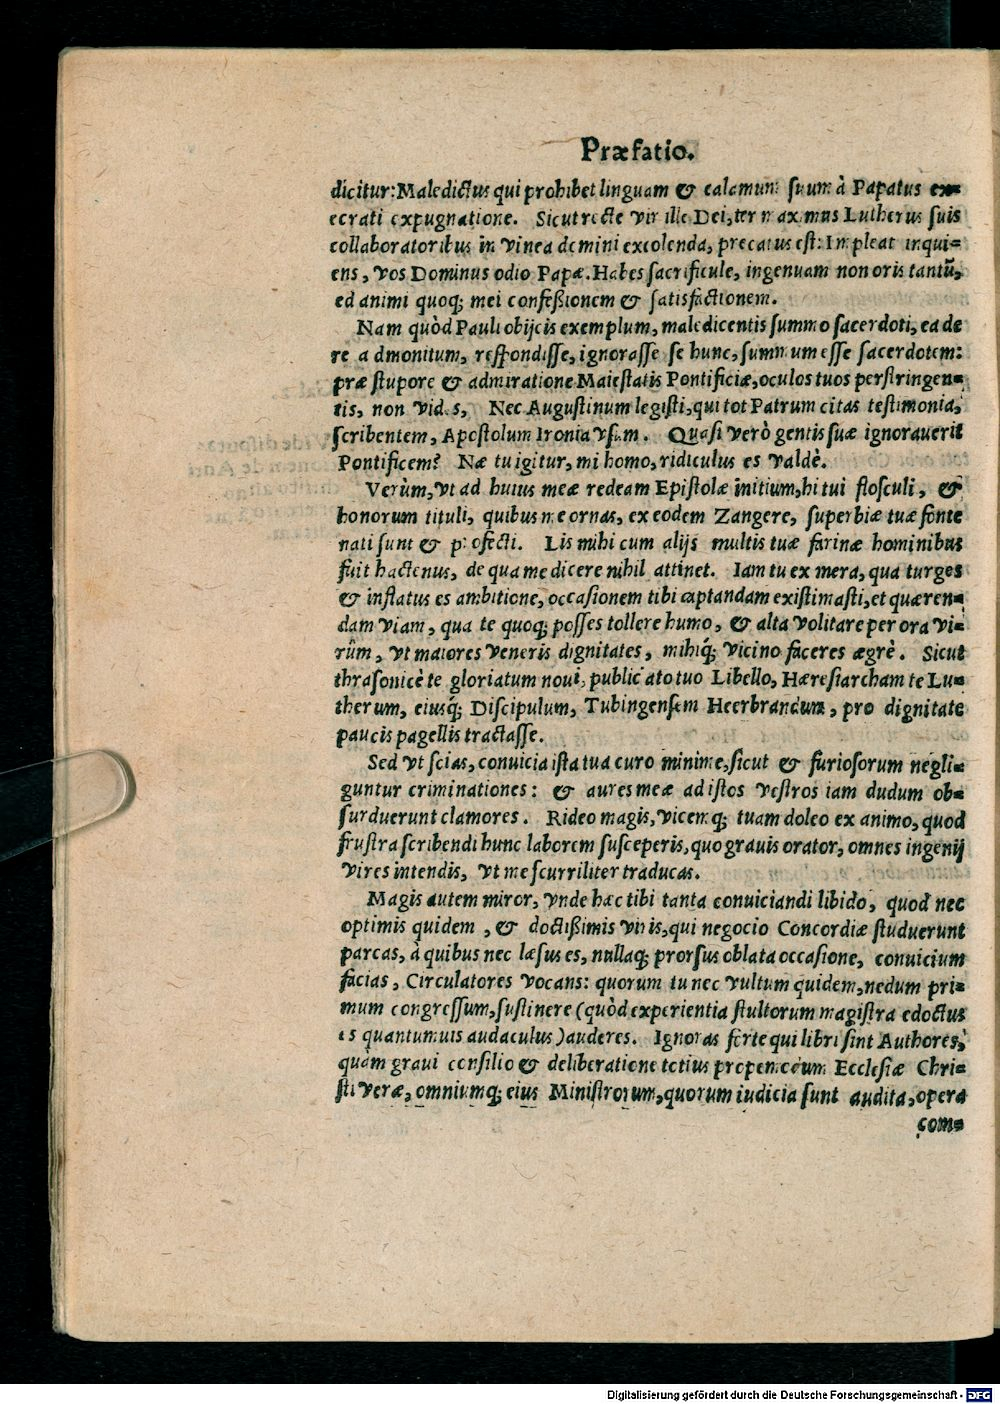 Præfatio.
dicitur: Maledictus qui prohibet linguam & calamum suum à Papatus ex=
ecrati expugnatione. Sicut recte vir ille Dei, ter maximus Lutherus suis
collaboratoribus in vinea domini excolenda, precatus est: Impleat inqui=
ens, vos Dominus odio Papæ. Habes sacrificule, ingenuam non oris tantū,
ed animi quoq; mei confeßionem & satisfactionem.
Nam quòd Pauli obijcis exemplum, maledicentis summo sacerdoti, ea de
re admonitum, respondisse, ignorasse se hunc, summum esse sacerdotem:
præ stupore & admiratione Maiestatis Pontificiæ, oculos tuos perstringen=
tis, non vides, Nec Augustinum legisti, qui tot Patrum citas testimonia,
scribentem, Apostolum Ironia vsum. Quasi verò gentis suæ ignorauerit
Pontificem? Næ tu igitur, mi homo, ridiculus es valdè.
Verùm, vt ad huius meæ redeam Epistolæ initium, hi tui flosculi, &
honorum tituli, quibus me ornas, ex eodem Zangere, superbiæ tuæ fonte
nati sunt & profecti. Lis mihi cum alijs multis tuæ farinæ hominibus
fuit hactenus, de qua me dicere nihil attinet. Iam tu ex mera, qua turges
& inflatus es ambitione, occasionem tibi captandam existimasti, et quæren=
dam viam, qua te quoq; posses tollere humo, & alta volitare per ora vi=
rûm, vt maiores veneris dignitates, mihiq́; vicino faceres ægrè. Sicut
thrasonicè te gloriatum noui, publicato tuo Libello, Hæresiarcham te Lu=
therum, eiusq́; Discipulum, Tubingensem Heerbrandum, pro dignitate
paucis pagellis tractasse.
Sed vt scias, conuicia ista tua curo minime, sicut & furiosorum negli=
guntur criminationes: & aures meæ ad istos vestros iam dudum ob=
surduerunt clamores. Rideo magis, vicemq; tuam doleo ex animo, quod
frustra scribendi hunc laborem susceperis, quo grauis orator, omnes ingenij
vires intendis, vt me scurriliter traducas.
Magis autem miror, vnde hæc tibi tanta conuiciandi libido, quod nec
optimis quidem, & doctißimis viris, qui negocio Concordiæ studuerunt
parcas, à quibus nec læsus es, nullaq; prorsus oblata occasione, conuicium
facias, Circulatores vocans: quorum tu nec vultum quidem, nedum pri=
mum congressum, sustinere (quòd experientia stultorum magistra edoctus
es quantumuis audaculus) auderes. Ignoras forte qui libri sint Authores,
quàm graui consilio & deliberatione totius propemodum Ecclesiæ Chri=
sti veræ, omniumq; eius Ministrorum, quorum iudicia sunt audita, opera
com=
Digitalisierung gefördert durch die Deutsche Forschungsgemeinschaft - DFG